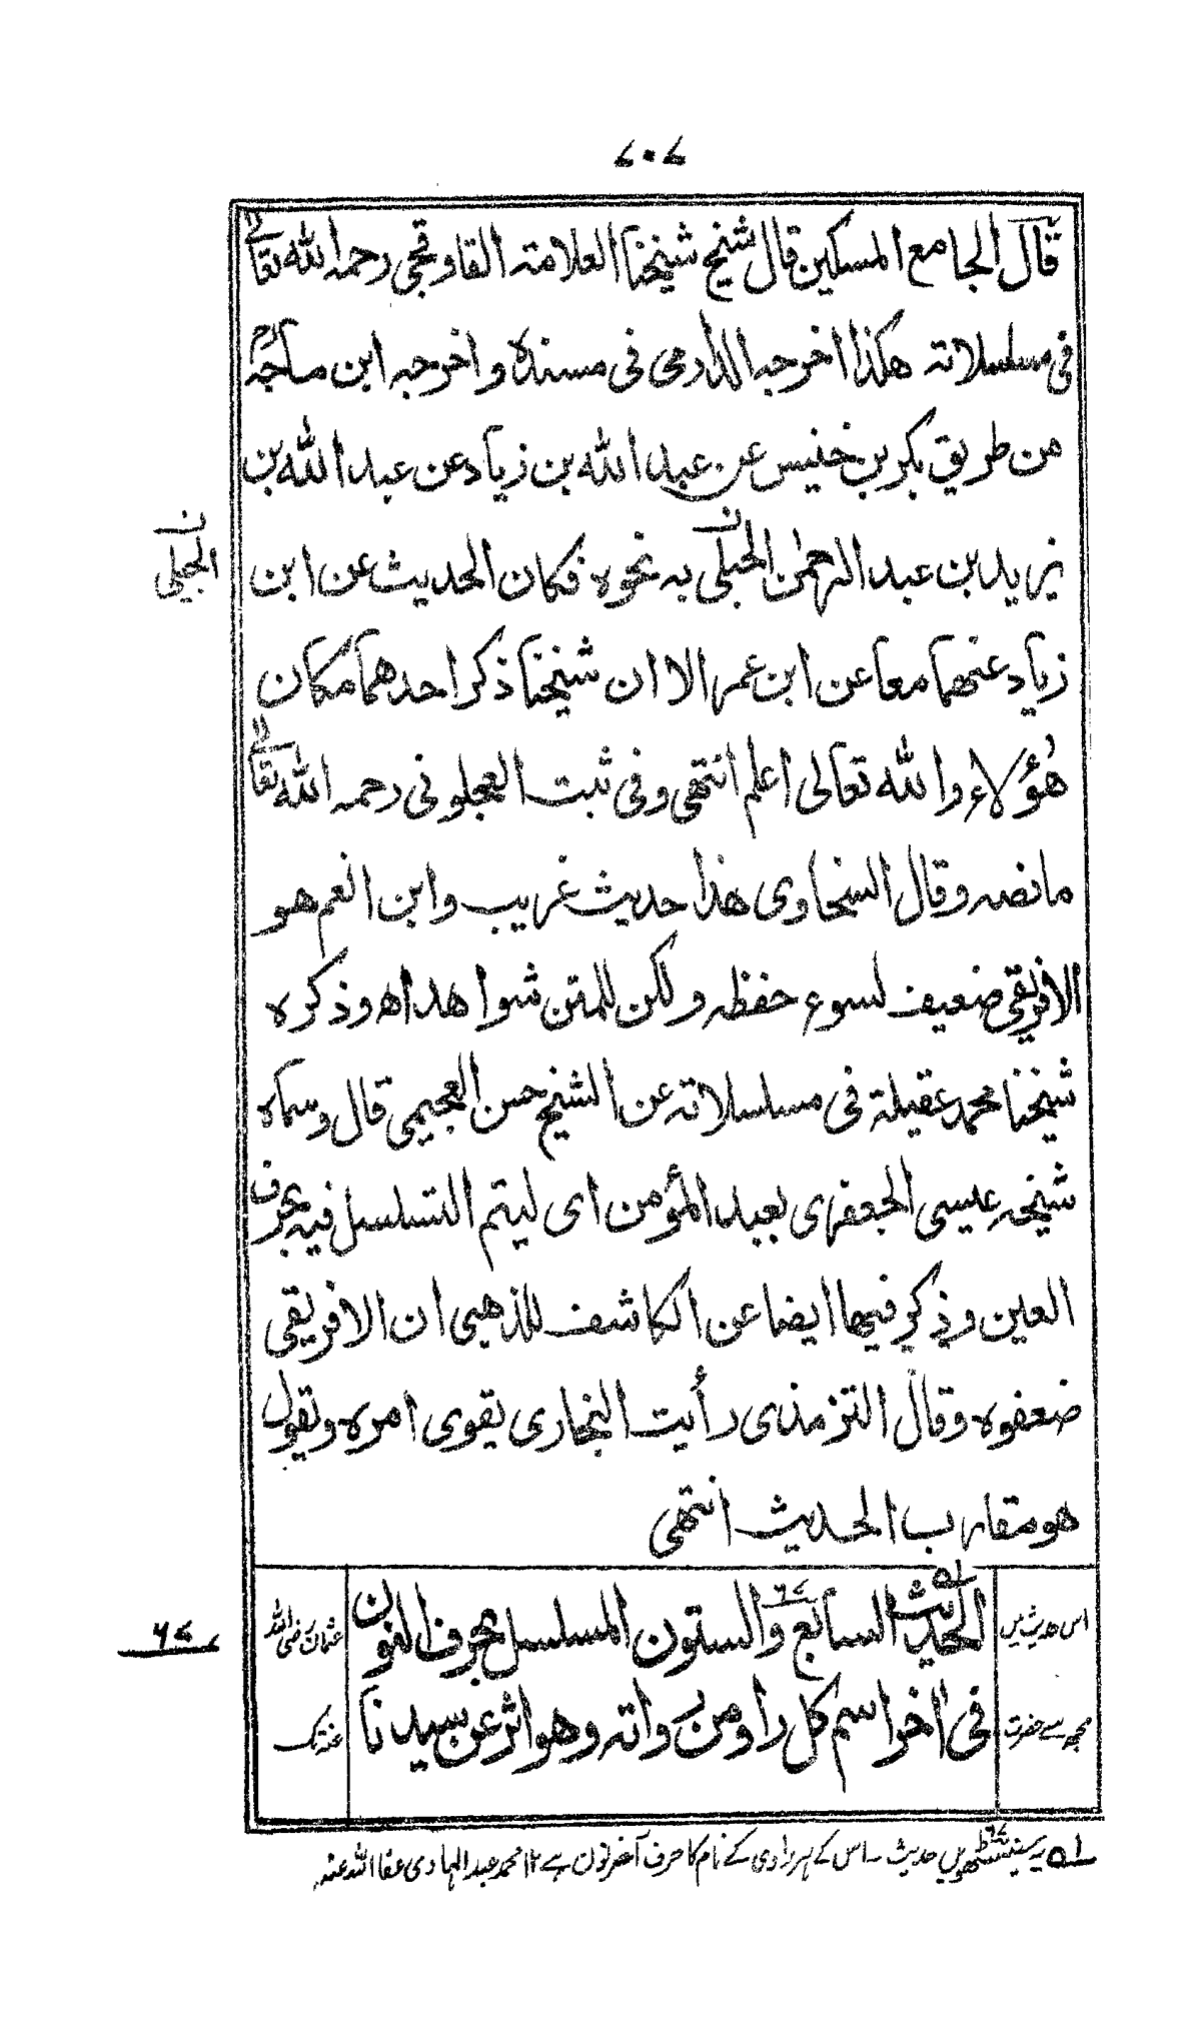 ۷۰۷
قال الجامع المسكين قال شيخ شيخنا العلامة القاوقجى رحمه الله تعالى
فى مسلسلاته هكذا اخرجه الدارمى فى مسنده واخرجه ابن ماجه
من طريق بكر بن خنيس عن عبد الله بن زياد عن عبد الله بن
يزيد بن عبد الرحمٰن الحبلى به نحوه فكان الحديث عن ابن
الجيلى ن
زياد عنهما معا عن ابن عمر الا ان شيخنا ذكر احدهما مكان
هٰؤلاء والله تعالى اعلم انتهى وفى ثبت العجلونى رحمه الله تعالى
مانصه وقال السخاوى هذا حديث غريب وابن انعم هو
الافريقى ضعيف لسوء حفظه ولكن للمتن شواهد اه وذكره
شيخنا محمد عقيلة فى مسلسلاته عن الشيخ حسن العجيمى قال وسماه
شيخه عيسى الجعفرى بعبد المؤمن اى ليتم التسلسل فيه بحرف
العين وذكر فيها ايضا عن الكاشف للذهبى ان الافريقى
ضعفوه وقال الترمذى رأيت البخارى يقوى امره ويقول
هو مقارب الحديث انتهى
الحديث السابع والستون المسلسل بحرف النون
فى اخر اسم كل راو من رواته وهو اثر عن سيدنا
اس حدیث میں
مجھ سے حضرت
عثمان رضی اللہ
عنہ تک
۶۷
۵۱ یہ سڑسٹھویں حدیث ۔ اس کے ہر راوی کے نام کا حرف آخر نون ہے ۱۲ محمد عبد الہادی عفا اللہ عنہ